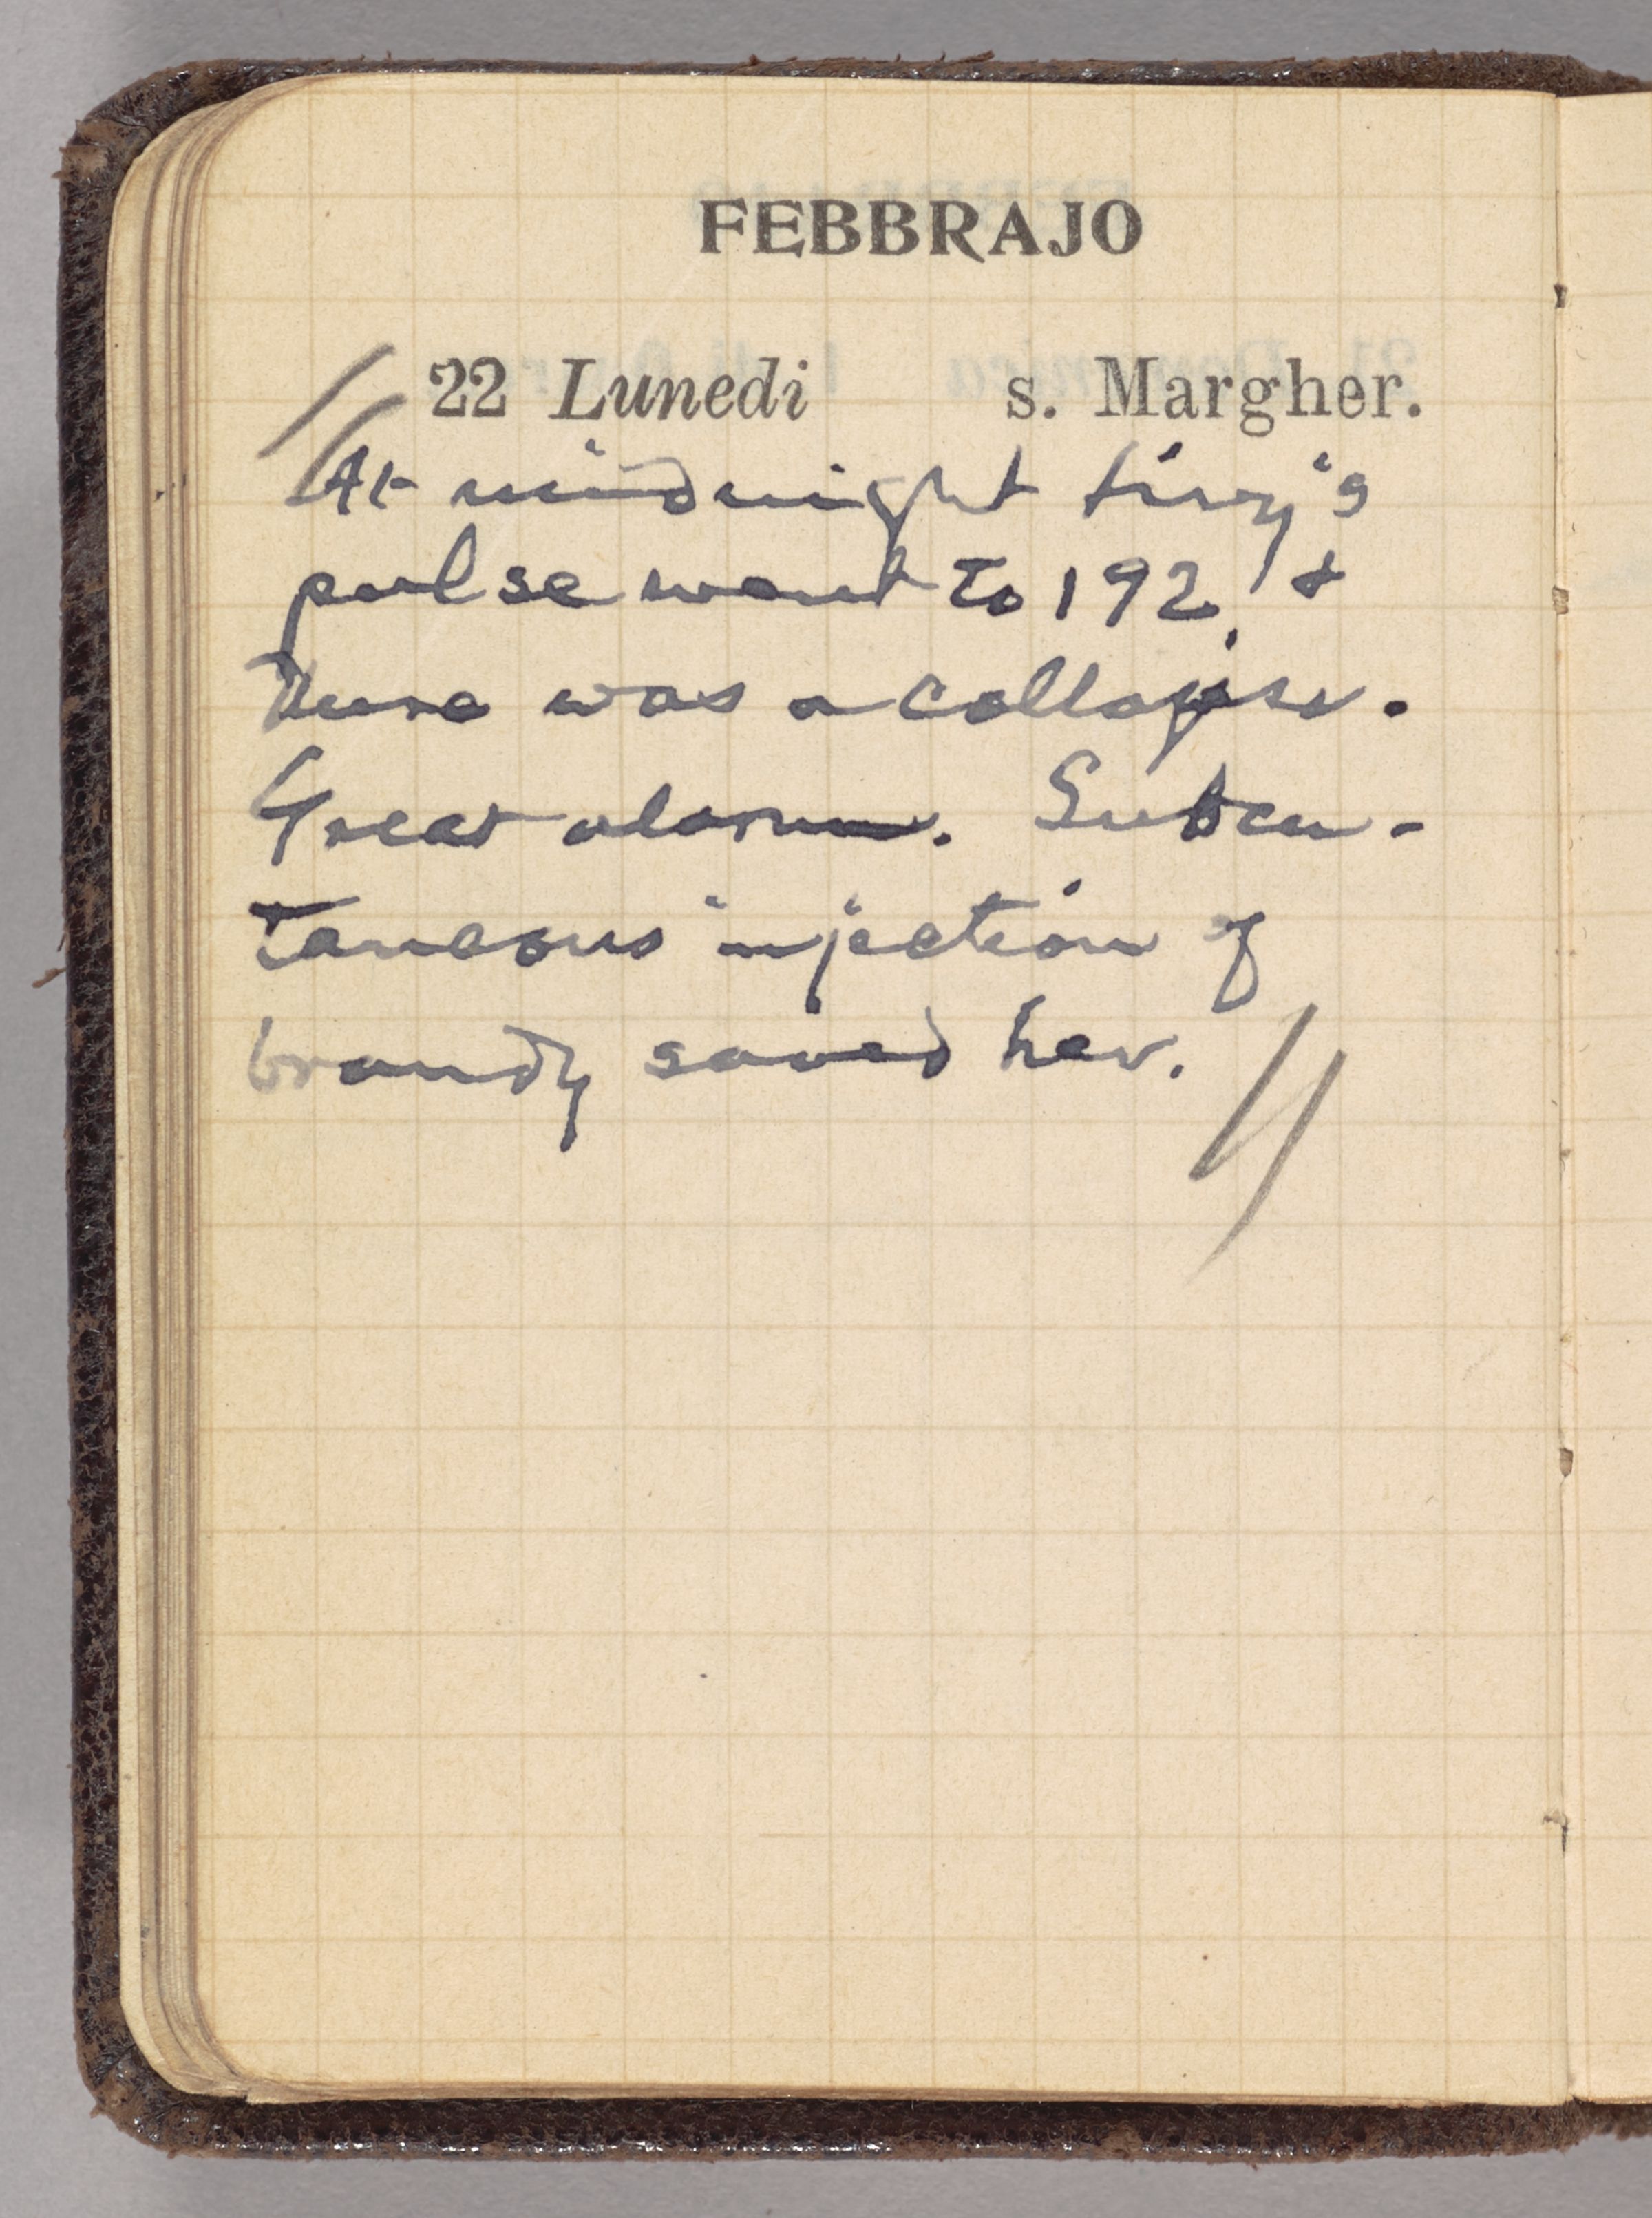 FEBBRAJO
22 Lunedi s. Margher.
At midnight Livy's
pulse went to 192, &
there was a collapse.
Great alarm. Subcu-
taneous injection of
brandy saved her.